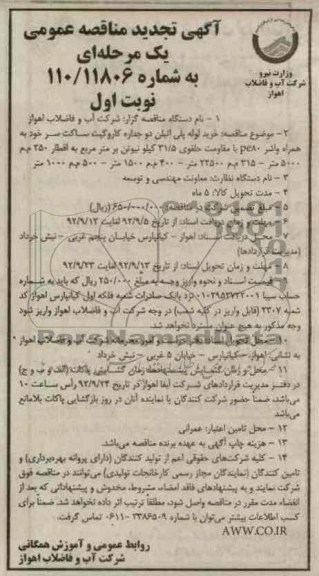 آگهی تجدید مناقصه عمومی
یک مرحله‌ای
به شماره ۱۱۰/۱۱۸۰۶
نوبت اول
وزارت نیرو
شرکت آب و فاضلاب
اهواز
۱ - نام دستگاه مناقصه گزار: شرکت آب و فاضلاب اهواز
۲ - موضوع مناقصه: خرید لوله پلی اتیلن دو جداره کاروگیت ساکت سر خود به
همراه واشر pe۸۰ با مقاومت حلقوی ۳۱/۵ کیلو نیوتن بر متر مربع به اقطار ۲۵۰ م‌م
۵۰۰۰ متر - ۳۱۵ م‌م ۲۲۵۰۰ متر - ۴۰۰ م‌م ۱۵۰۰ متر - ۵۰۰ م‌م ۱۰۰۰ متر
۳ - نام دستگاه نظارت: معاونت مهندسی و توسعه
۴ - مدت تحویل کالا: ۵ ماه
۵ - مبلغ تضمین شرکت در مناقصه: ۶۵۰/۰۰۰/۰۰۰ (ریال)
۶ - مهلت و زمان دریافت اسناد: از تاریخ ۹۲/۹/۵ لغایت ۹۲/۹/۱۲
۷ - محل دریافت اسناد: اهواز - کیانپارس خیابان پنجم غربی - نبش خرداد
(مدیریت قراردادها)
۸ - مهلت و زمان تحویل اسناد: از تاریخ ۹۲/۹/۱۳ لغایت ۹۲/۹/۲۳
۹ - قیمت اسناد و نحوه واریز وجه به مبلغ ۲۵۰/۰۰۰ ریال که باید به شماره
حساب سیبا ۰۱۰۲۹۵۲۷۲۲۰۰۱ نزد بانک صادرات شعبه فلکه اول کیانپارس اهواز کد
۲۳۰۷ (قابل واریز در کلیه شعب) در وجه شرکت آب و فاضلاب اهواز واریز شود
وجه مذکور به هیچ عنوان مسترد نخواهد شد.
۱۰ - محل تحویل شرکت آب و فاضلاب اهواز
به نشانی: اهواز - کیانپارس - خیابان ۵ غربی - نبش خرداد
۱۱ - محل و زمان گشایش پیشنهادها: زمان گشایش پاکات (الف و ب و ج)
در دفتر مدیریت قراردادهای شرکت آبفا اهواز در تاریخ ۹۲/۹/۲۴ رأس ساعت ۱۰
می‌باشد، ضمناً حضور شرکت کنندگان یا نماینده آنان در روز بازگشایی پاکات بلامانع
می‌باشد
۱۲ - محل تامین اعتبار: عمرانی
۱۳ - هزینه چاپ آگهی به عهده برنده مناقصه می‌باشد.
۱۴ - کلیه شرکت‌های حقوقی اعم از تولید کنندگان (دارای پروانه بهره‌برداری) و
تامین کنندگان (نمایندگان مجاز رسمی کارخانجات تولیدی) می‌توانند در مناقصه فوق
شرکت نمایند و به پیشنهادهای فاقد امضاء، مشروط، مخدوش و پیشنهاداتی که بعد از
انقضاء مدت مقرر در مناقصه واصل شود، مطلقاً ترتیب اثر داده نخواهد شد. ضمناً برای
کسب اطلاعات بیشتر می‌توان با شماره ۳۳۸۶۵۰۹-۰۶۱۱ تماس گرفت.
AWW.CO.IR
روابط عمومی و آموزش همگانی
شرکت آب و فاضلاب اهواز